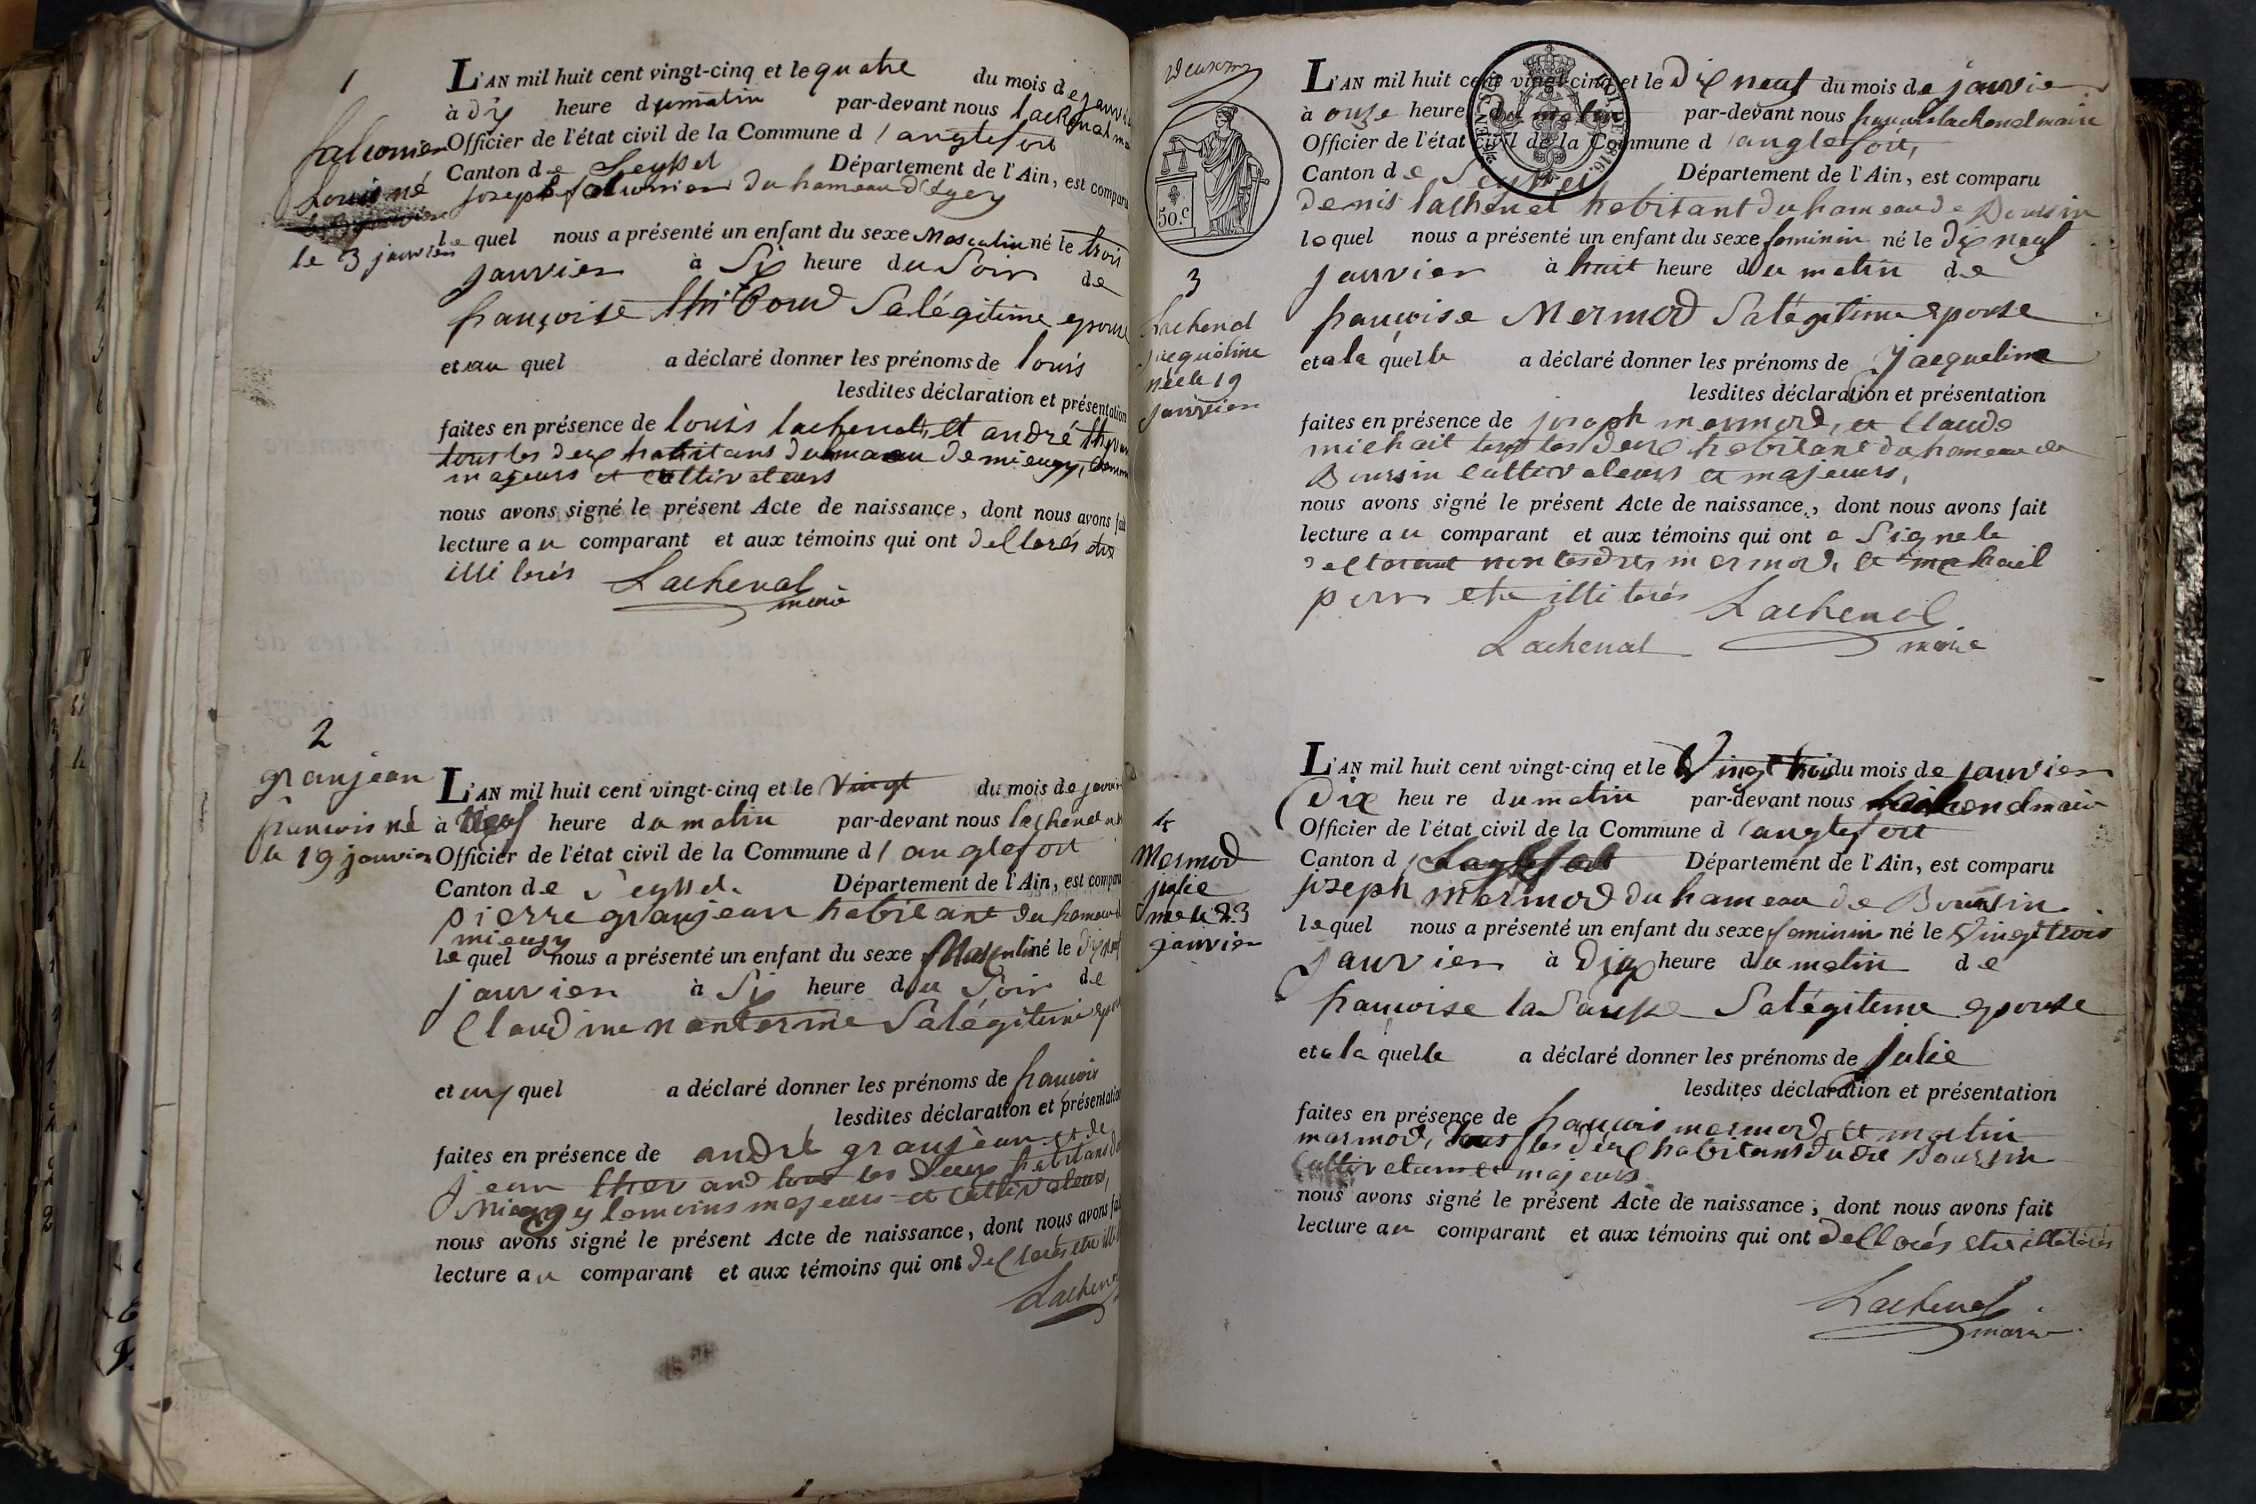 1
falconnier
Louis né
le 3 janvier
L'AN mil huit cent vingt-cinq et le quatre du mois de janvier
à dix heure du matin par-devant nous lachenal
Officier de l'état civil de la Commune d'anglefort
Canton de Seyssel Département de l'Ain, est comparu
joseph falconnier du hameau
le quel nous a présenté un enfant du sexe Masculin né le trois
janvier à Six heure du Soir de
françoise Salégitime epouse
et au quel a déclaré donner les prénoms de louis
lesdites déclaration et présentation
faites en présence de louis lachenal, et andré
tous les deux habitans du de
majeurs et cultivateurs
nous avons signé le présent Acte de naissance, dont nous avons fait
lecture au comparant et aux témoins qui ont declarés etre
illiterés Lachenal
maire
2
granjean
francois né
le 19 janvier
L'AN mil huit cent vingt-cinq et le Vingt du mois de janvier
à Neuf heure du matin par-devant nous lachenal
Officier de l'état civil de la Commune d'anglefort
Canton de Seyssel. Département de l'Ain, est comparu
pierre granjean habitant du hameau
le quel nous a présenté un enfant du sexe Masculin né le dix neuf
janvier à Six heure du Soir de
Claudine Salégitime epouse
et au quel a déclaré donner les prénoms de francois
lesdites déclaration et présentation
faites en présence de andré granjean et de
jean tous les deux habitans
temoins majeurs et cultivateurs,
nous avons signé le présent Acte de naissance, dont nous avons fait
lecture au comparant et aux témoins qui ont declarés etre
Lachenal
50.c
3
Lachenal
jacqueline
née le 19
janvier
L'AN mil huit cent vingt-cinq et le Dix neuf du mois de janvier
à onze heure du matin par-devant nous lachenal maire
Officier de l'état civil de la Commune d'anglefort,
Canton de Seyssel Département de l'Ain, est comparu
denis lachenal habitant du hameau de Boursin
le quel nous a présenté un enfant du sexe feminin né le dix neuf
janvier à huit heure du matin de
françoise Mermod Salégitime epouse
et a la quelle a déclaré donner les prénoms de jacqueline
lesdites déclaration et présentation
faites en présence de joseph mermod, et Claude
michait tous les deux habitant du hameau de
Boursin Cultivateurs et majeurs,
nous avons signé le présent Acte de naissance, dont nous avons fait
lecture au comparant et aux témoins qui ont a Signe le
declarant non lesdits mermod, et
pour etre illiterés Lachenal
Lachenal maire
4
Mermod
julie
née le 23
janvier
L'AN mil huit cent vingt-cinq et le Vingt trois du mois de janvier
Dix heure du matin par-devant nous Lachenal maire
Officier de l'état civil de la Commune d'anglefort
Canton d Département de l'Ain, est comparu
joseph Mermod du hameau de Boursin
le quel nous a présenté un enfant du sexe feminin né le Vingt trois
janvier à Dix heure du matin de
françoise Salégitime epouse
et a la quelle a déclaré donner les prénoms de Julie
lesdites déclaration et présentation
faites en présence de francois mermod, et martin
marmod, tous les deux habitans du dit Boursin
Cultivateurs et majeurs.
nous avons signé le présent Acte de naissance, dont nous avons fait
lecture au comparant et aux témoins qui ont declarés etre illiterés
Lachenal
maire